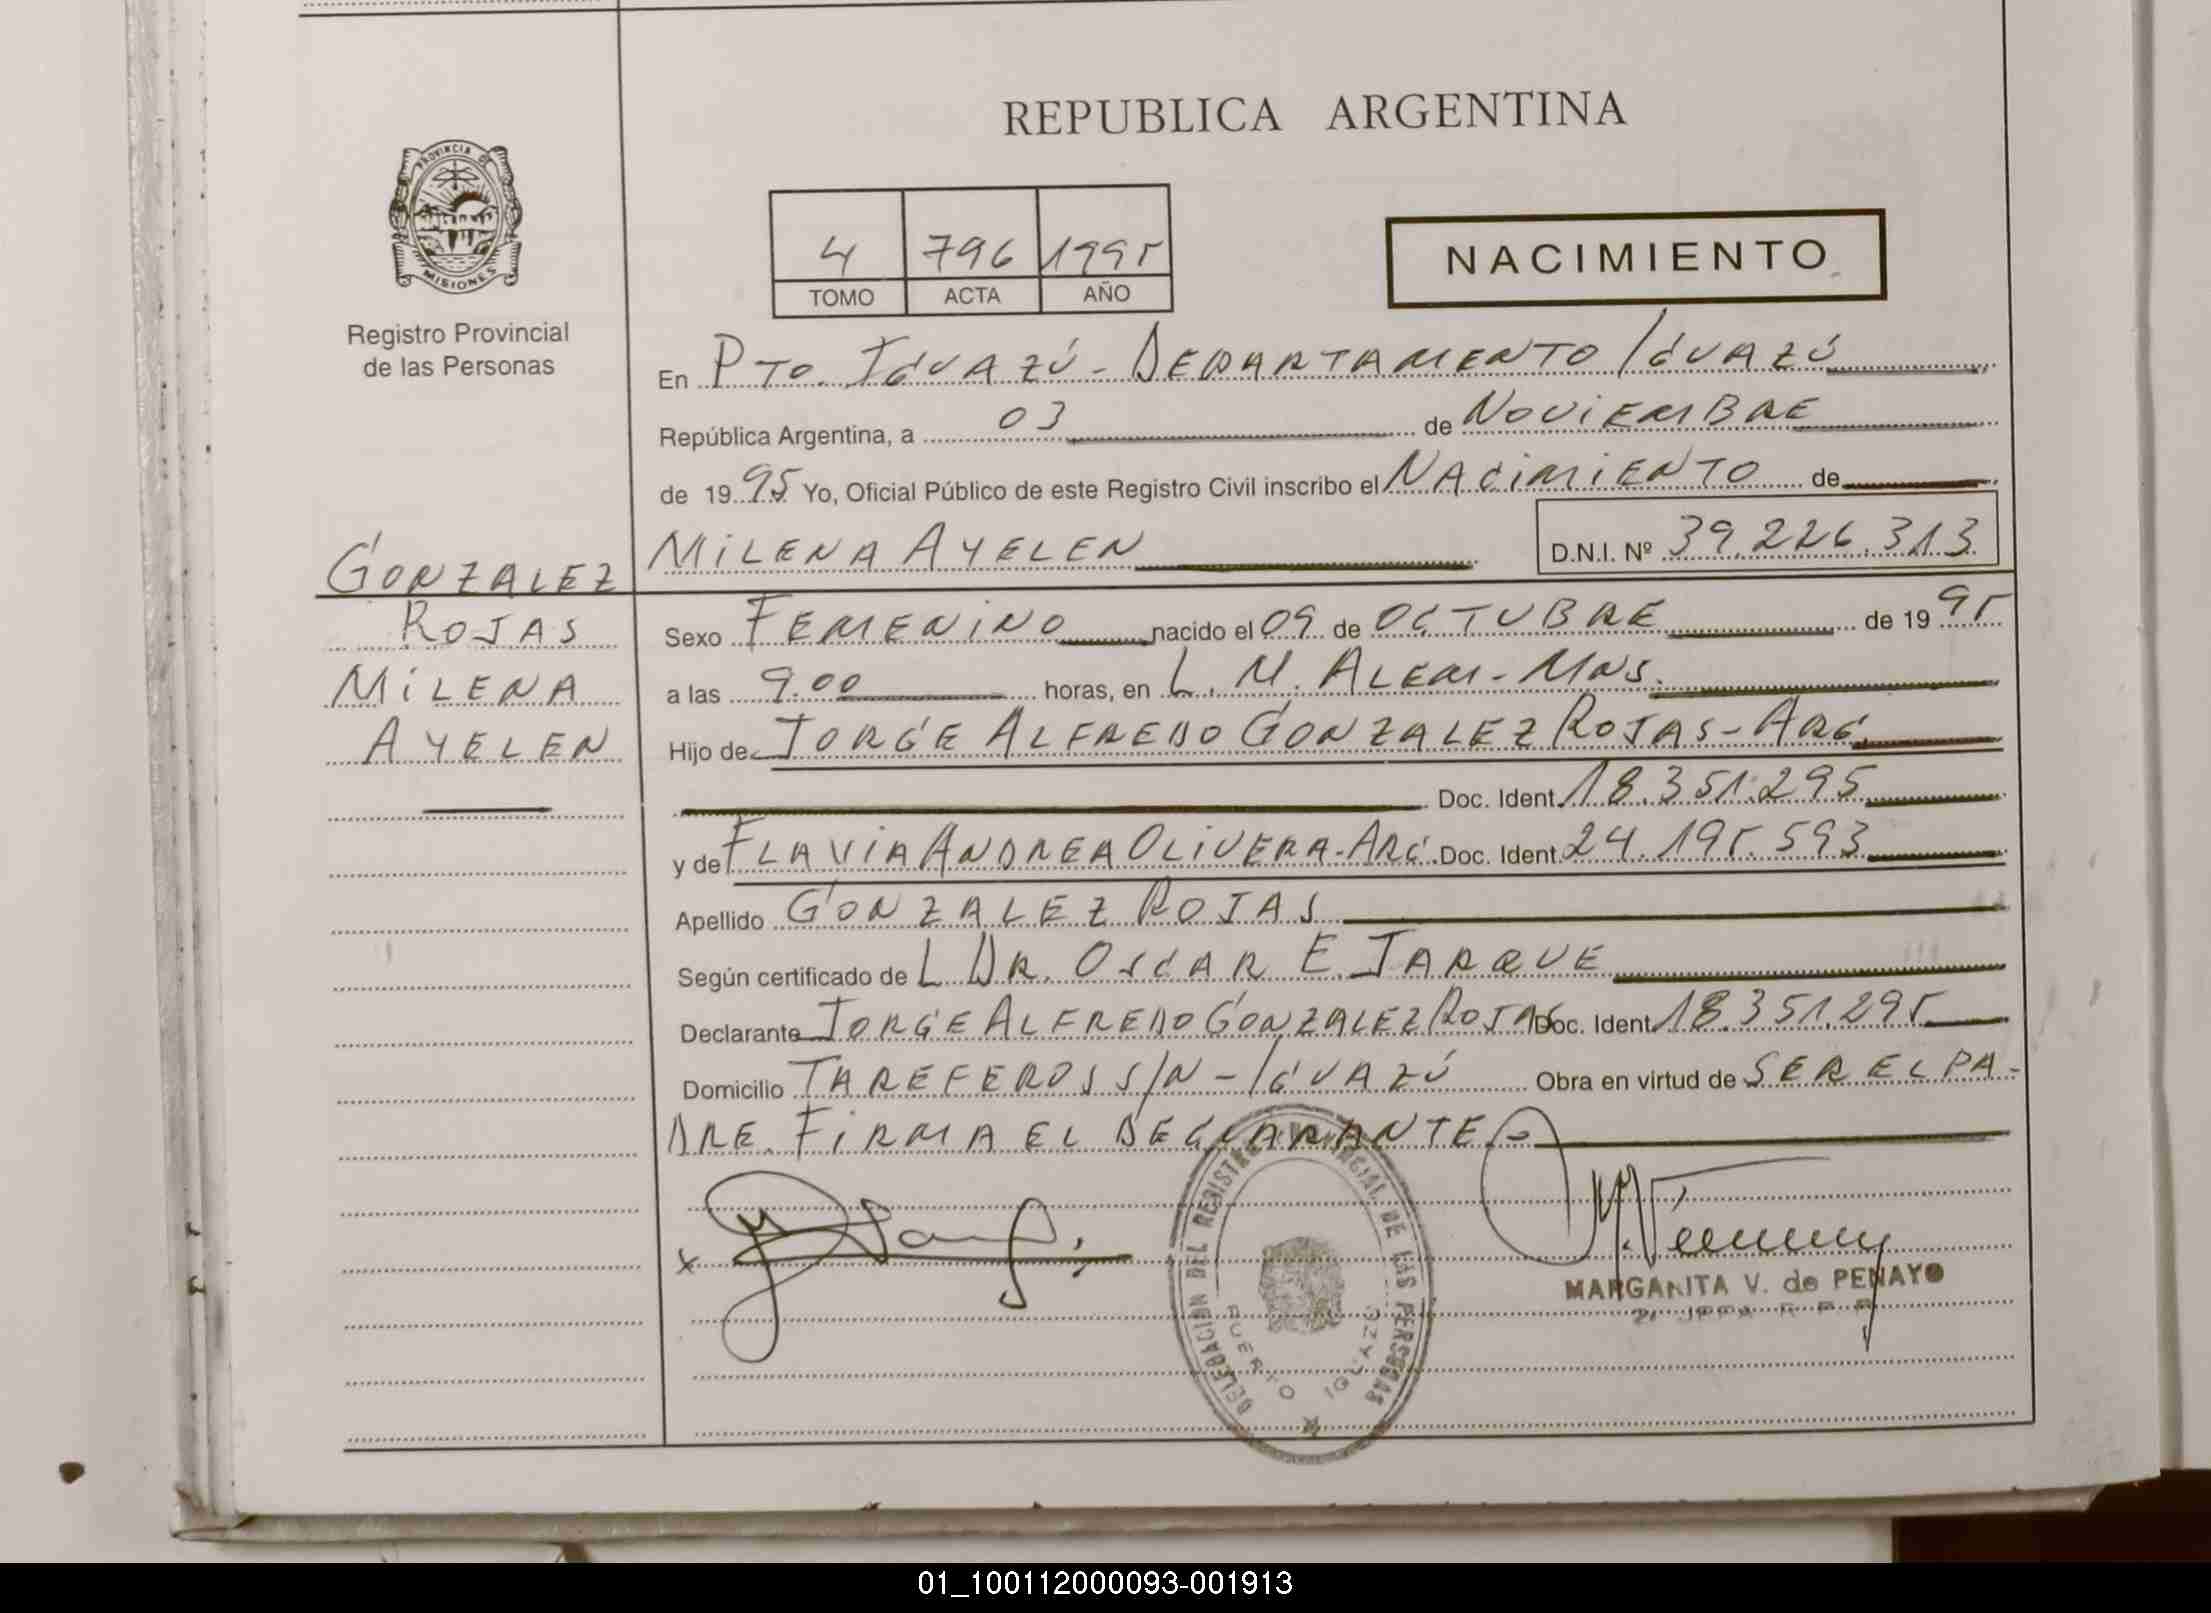 REPUBLICA ARGENTINA
PROVINCIA DE
MISIONES
Registro Provincial
de las Personas
4 796 1995
TOMO ACTA AÑO
NACIMIENTO
En PTO. IGUAZÚ - DEPARTAMENTO IGUAZÚ
República Argentina, a 03 de NOVIEMBRE
de 1995 Yo, Oficial Público de este Registro Civil inscribo el NACIMIENTO de
MILENA AYELEN D.N.I. Nº 39.226.313
GONZALEZ
ROJAS
MILENA
AYELEN
Sexo FEMENINO nacido el 09 de OCTUBRE de 1995
a las 9.00 horas, en L. N. ALEM - MNS.
Hijo de JORGE ALFREDO GONZALEZ ROJAS - ARG.
Doc. Ident. 18.351.295
y de FLAVIA ANDREA OLIVERA - ARG. Doc. Ident. 24.195.593
Apellido GONZALEZ ROJAS
Según certificado de L DR. OSCAR E. JARQUE
Declarante JORGE ALFREDO GONZALEZ ROJAS Doc. Ident. 18.351.295
Domicilio TAREFEROS S/N - IGUAZÚ Obra en virtud de SER EL PA-
DRE. FIRMA EL DECLARANTE
x
DELEGACION DEL REGISTRO PROVINCIAL DE LAS PERSONAS
PUERTO IGUAZU
MARGARITA V. de PENAYO
01_100112000093-001913